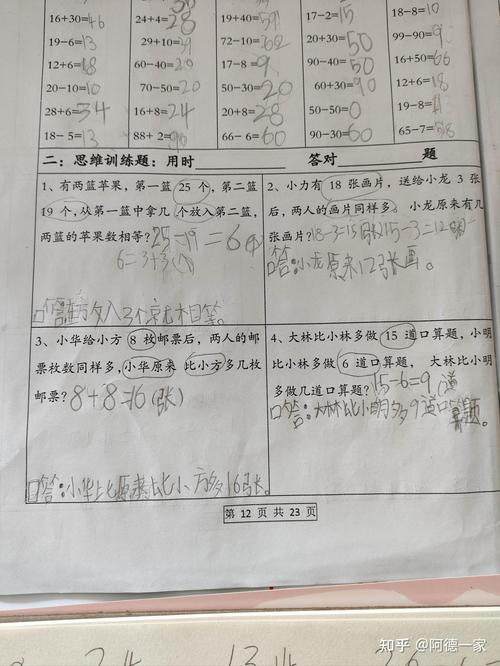 24+4=28 19+40=59 17-2=15 18-8=10
16+30=46 29+10=39 72-10=62 20+30=50 99-90=9
19-6=13 60-40=20 17-8=9 90-40=50 16+50=66
12+6=18 70-50=20 50-30=20 60+30=90 12+6=18
20-10=10 16+8=24 20+8=28 50-50=0 19-8=11
28+6=34 88+2=90 66-6=60 90-30=60 65-7=58
18-5=13
二:思维训练题:用时 答对 题
1、有两篮苹果,第一篮 25 个,第二篮
19 个,从第一篮中拿几 个放入第二篮,
两篮的苹果数相等?25-19=6(个)
6=3+3(个)
2、小力有 18 张画片,送给小龙 3 张
后,两人的画片同样多。小龙原来有几
张画片?18-3=15(张)15-3=12(张)
口答:小龙原来12张画。
3、小华给小方 8 枚邮票后,两人的邮
票枚数同样多,小华原来 比小方多几枚
邮票?8+8=16(张)
口答:小华比原来比小方多16张。
4、大林比小林多做 15 道口算题,小明
比小林多做 6 道口算题, 大林比小明
多做几道口算题?15-6=9(道)
口答:大林比小明多9道口算题。
第 12 页 共 23 页
知乎 @阿德一家